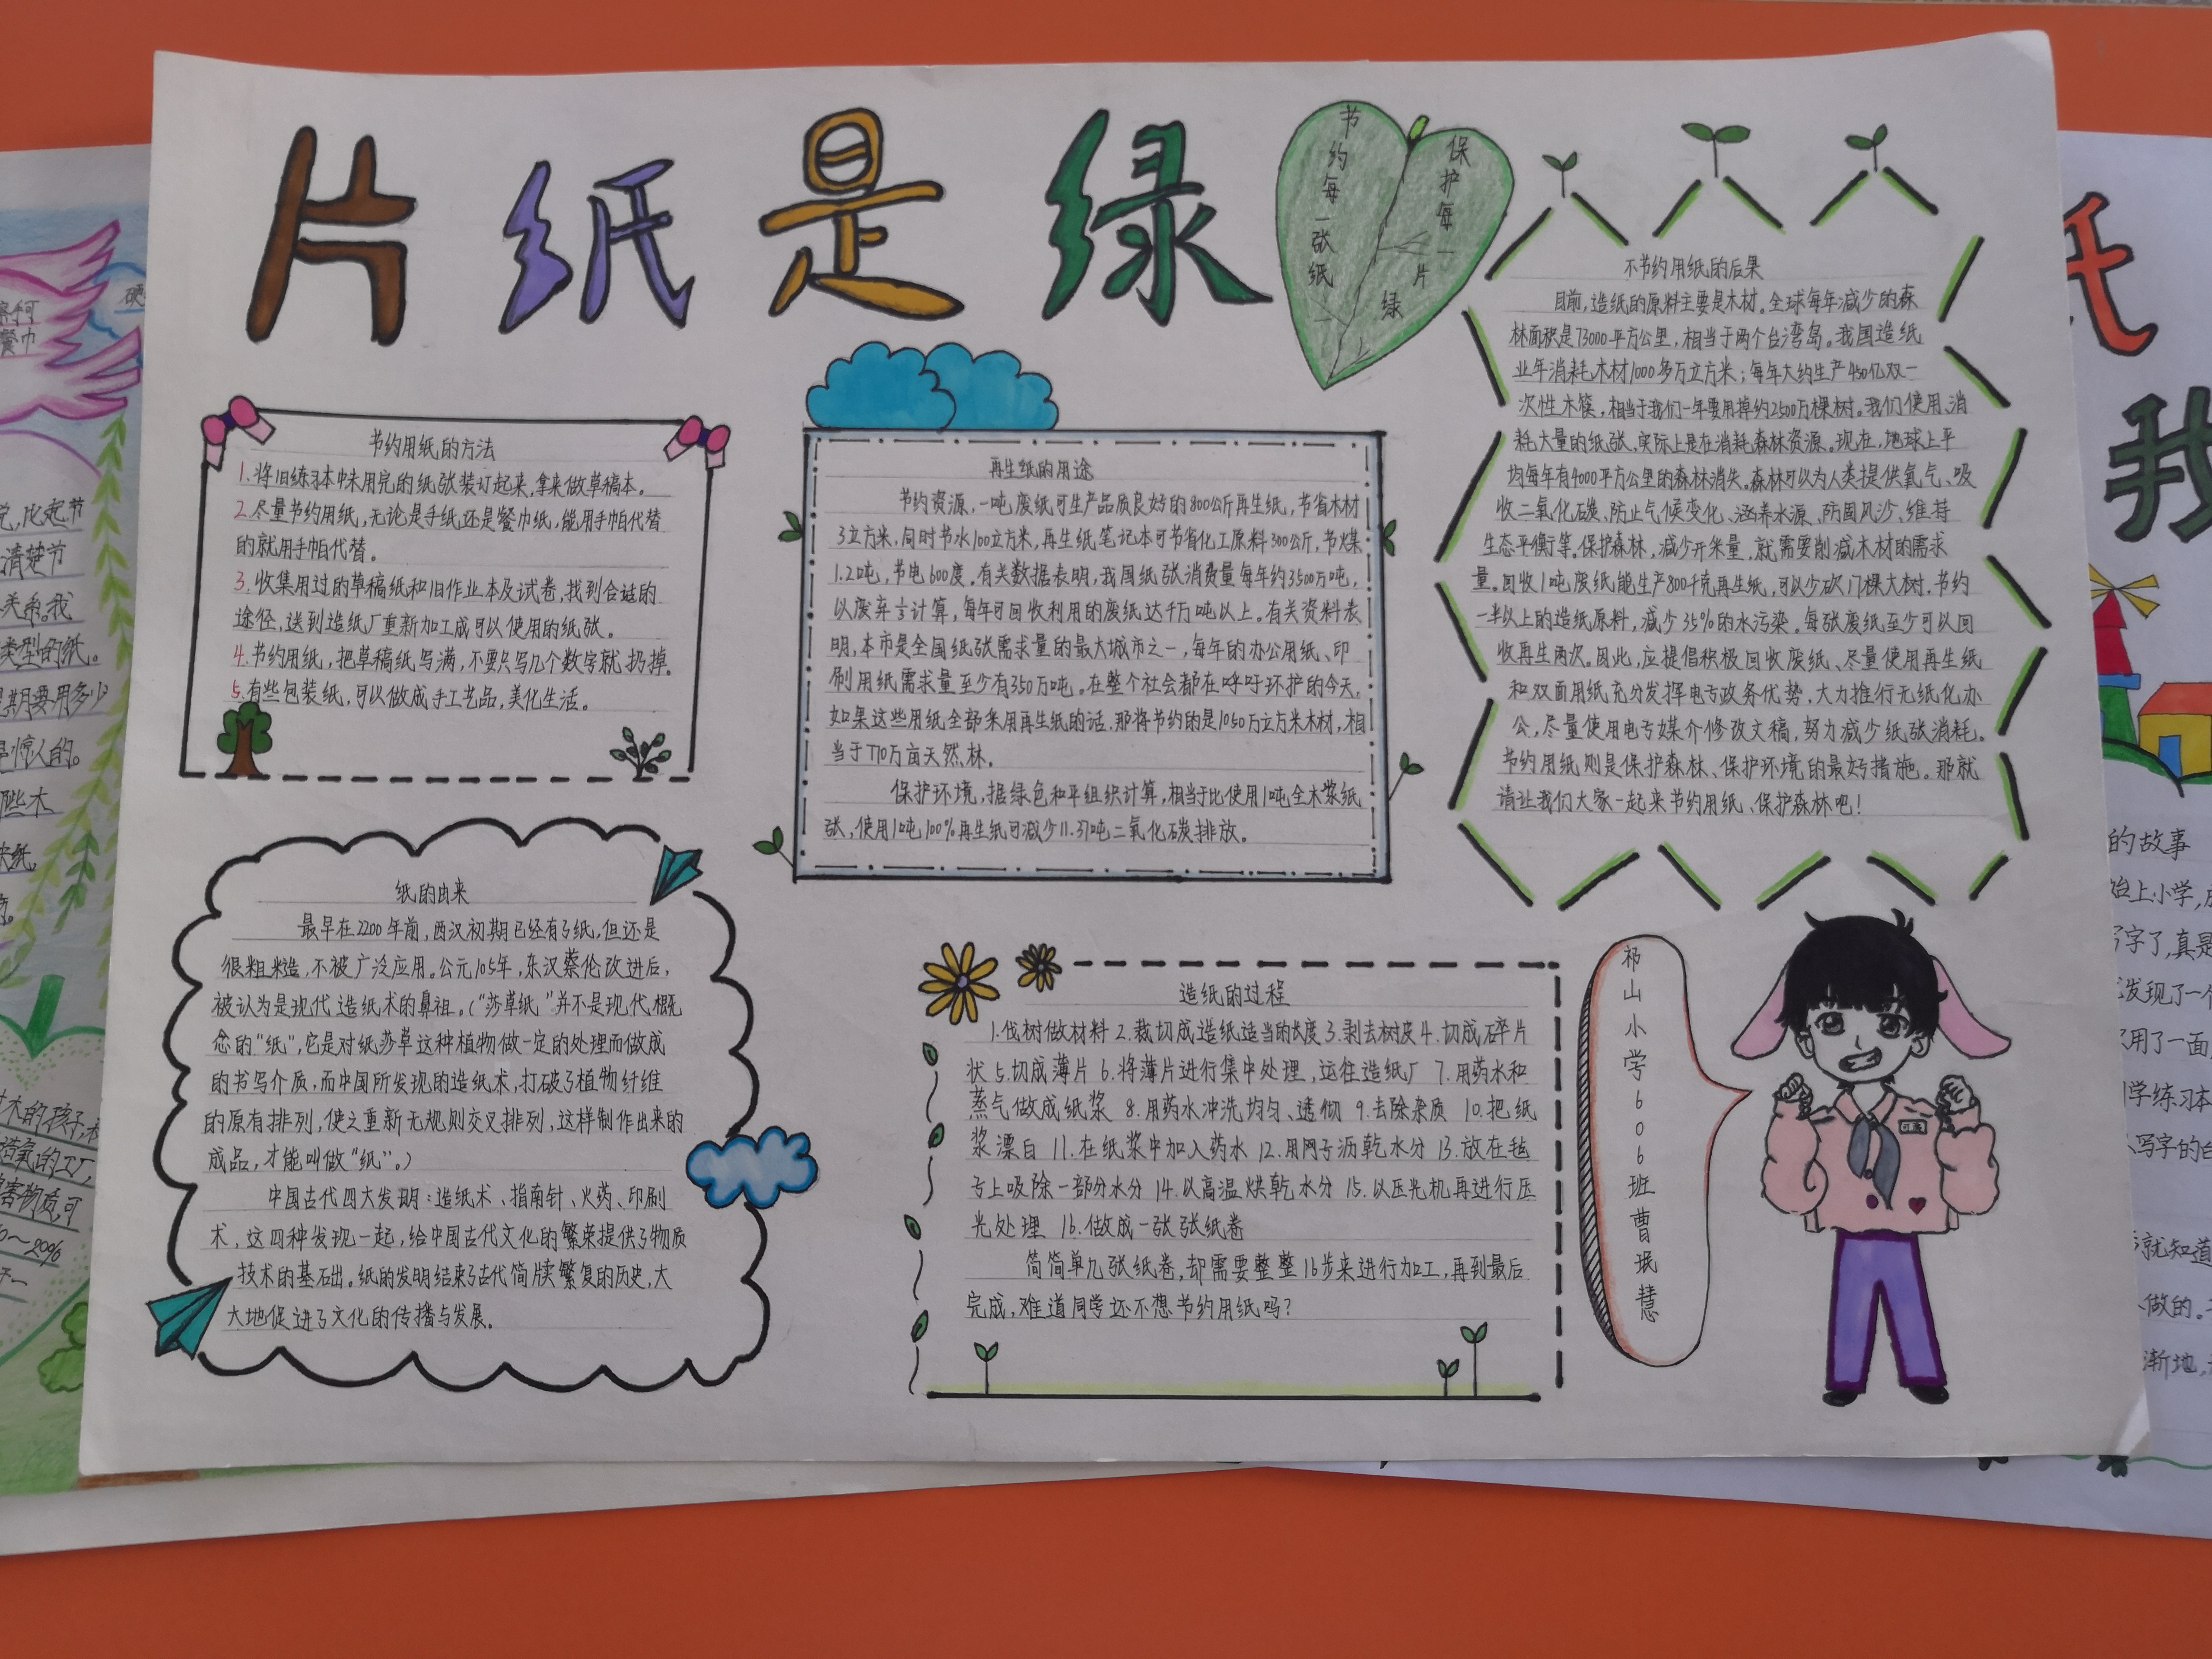 片纸是绿
节约每一张纸
保护每一片绿
节约用纸的方法
1.将旧练习本中未用完的纸张装订起来,拿来做草稿本。
2.尽量节约用纸,无论是手纸还是餐巾纸,能用手帕代替
的就用手帕代替。
3.收集用过的草稿纸和旧作业本及试卷,找到合适的
途径,送到造纸厂重新加工成可以使用的纸张。
4.节约用纸,把草稿纸写满,不要只写几个数字就扔掉。
5.有些包装纸,可以做成手工艺品,美化生活。
再生纸的用途
节约资源,一吨废纸可生产品质良好的800公斤再生纸,节省木材
3立方米,同时节水100立方米,再生纸笔记本可节省化工原料300公斤,节煤
1.2吨,节电600度。有关数据表明,我国纸张消费量每年约3500万吨,
以废弃言计算,每年可回收利用的废纸达千万吨以上。有关资料表
明,本市是全国纸张需求量的最大城市之一,每年的办公用纸、印
刷用纸需求量至少有350万吨。在整个社会都在呼吁环护的今天,
如果这些用纸全部采用再生纸的话,那将节约的是1050万立方米木材,相
当于770万亩天然林。
保护环境,据绿色和平组织计算,相当于比使用1吨全木浆纸
张,使用1吨100%再生纸可减少11.37吨二氧化碳排放。
不节约用纸的后果
目前,造纸的原料主要是木材。全球每年减少的森
林面积是73000平方公里,相当于两个台湾岛。我国造纸
业年消耗木材1000多万立方米;每年大约生产450亿双一
次性木筷,相当于我们一年要用掉约2500万棵树。我们使用、消
耗大量的纸张,实际上是在消耗森林资源。现在,地球上平
均每年有4000平方公里的森林消失。森林可以为人类提供氧气、吸
收二氧化碳、防止气候变化、涵养水源、防风风沙、维持
生态平衡等。保护森林,减少开采量,就需要削减木材的需求
量。回收1吨废纸能生产800千克再生纸,可以少砍17棵大树,节约
一半以上的造纸原料,减少35%的水污染。每张废纸至少可以回
收再生两次。因此,应提倡积极回收废纸、尽量使用再生纸
和双面用纸充分发挥电子政务优势,大力推行无纸化办
公,尽量使用电子媒介修改文稿,努力减少纸张消耗。
节约用纸则是保护森林、保护环境的最好措施。那就
请让我们大家一起来节约用纸、保护森林吧!
纸的由来
最早在2200年前,西汉初期已经有了纸,但还是
很粗糙,不被广泛应用。公元105年,东汉蔡伦改进后,
被认为是现代造纸术的鼻祖。(“莎草纸”并不是现代概
念的“纸”,它是对纸莎草这种植物做一定的处理而做成
的书写介质,而中国所发现的造纸术,打破了植物纤维
的原有排列,使之重新无规则交叉排列,这样制作出来的
成品,才能叫做“纸”。)
中国古代四大发明:造纸术、指南针、火药、印刷
术,这四种发现一起,给中国古代文化的繁荣提供了物质
技术的基础。纸的发明结束了古代简牍繁复的历史,大
大地促进了文化的传播与发展。
造纸的过程
1.伐树做材料 2.裁切成造纸适当的长度 3.剥去树皮 4.切成碎片
状 5.切成薄片 6.将薄片进行集中处理,运往造纸厂 7.用药水和
蒸气做成纸浆 8.用药水冲洗均匀、透彻 9.去除杂质 10.把纸
浆漂白 11.在纸浆中加入药水 12.用网子沥乾水分 13.放在毡
子上吸除一部分水分 14.以高温烘乾水分 15.以压光机再进行压
光处理 16.做成一张张纸卷
简简单几张纸卷,却需要整整16步来进行加工,再到最后
完成,难道同学还不想节约用纸吗?
祁山小学606班曹珉慧
餐巾
比起节
清楚节
关系。我
类型的纸。
期要用多少
惊人的。
木的孩子,
氧的工厂,
害物质,可
20%
纸
我
的故事
始上小学,
写字了,真是
发现了一个
用了一面,
同学练习本
写字的白
就知道
做的。
渐地,